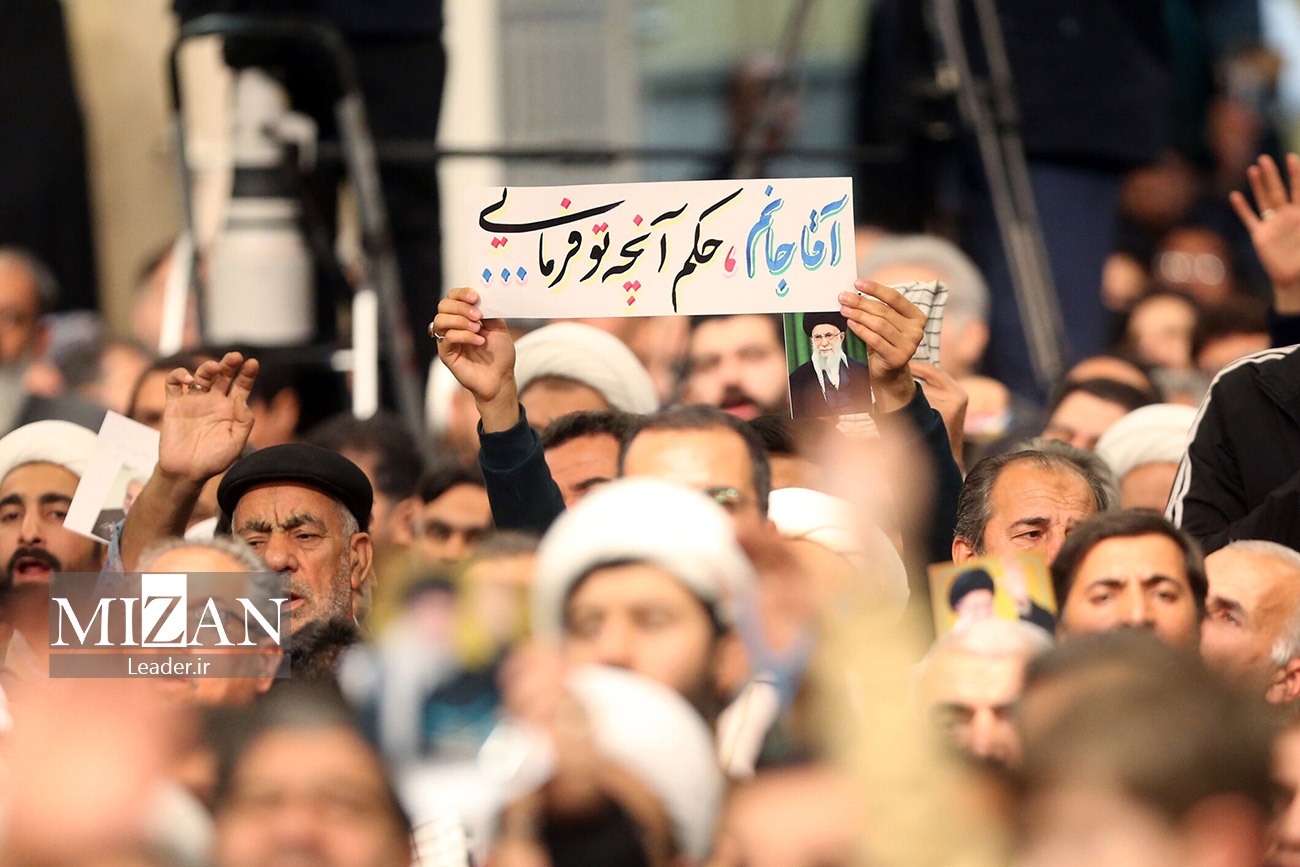 آقا جانم، حکم آنچه تو فرمایی...
MIZAN
Leader.ir